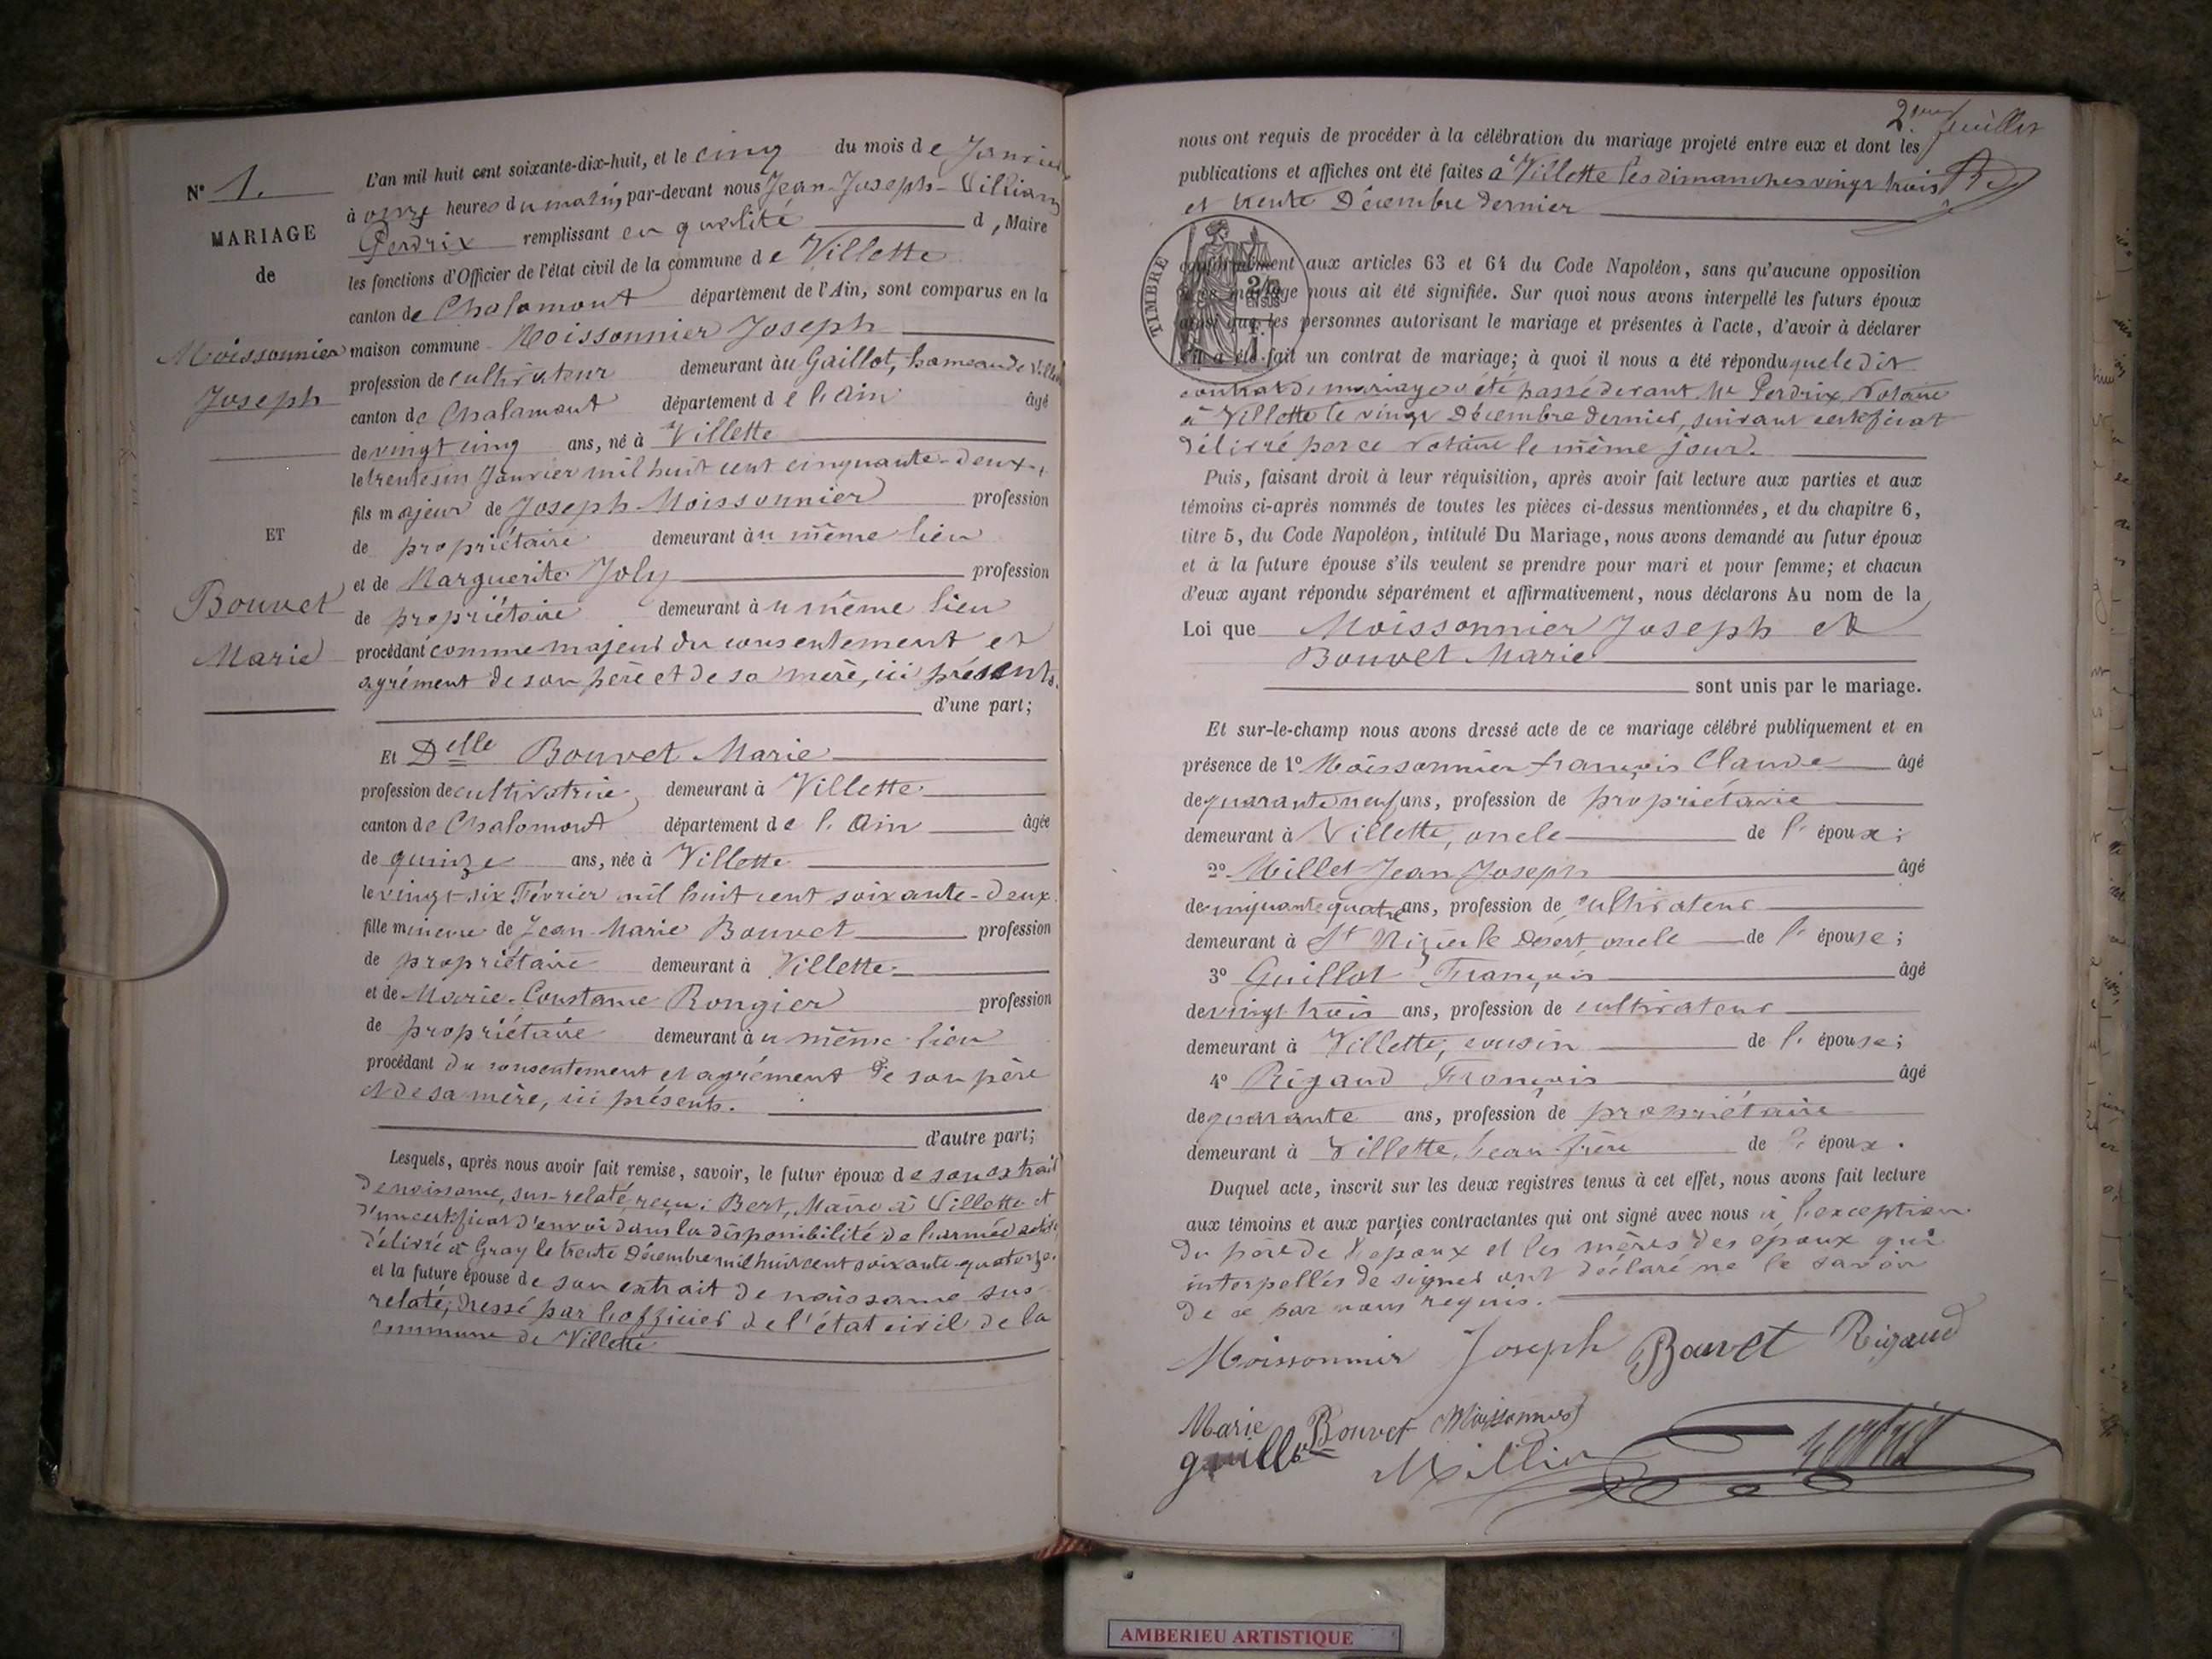 N° 1.
MARIAGE
de
Moissonnier
Joseph
ET
Bouvet
Marie
L'an mil huit cent soixante-dix-huit, et le cinq du mois de Janvier
à onze heures du matin, par-devant nous Jean-Joseph-Villiam
Perdrix remplissant en qualité d, Maire
les fonctions d'Officier de l'état civil de la commune de Villette
canton de Chalamont département de l'Ain, sont comparus en la
maison commune Moissonnier Joseph
profession de cultivateur demeurant au Gaillot, hameau de
canton de Chalamont département de l'ain âgé
de vingt cinq ans, né à Villette
le trente un Janvier mil huit cent cinquante-deux,
fils majeur de Joseph Moissonnier profession
de propriétaire demeurant au même lieu
et de Marguerite Joly profession
de propriétaire demeurant au même lieu
procédant comme majeur du consentement et
agrément de son père et de sa mère, ici présents.
d'une part;
Et Delle Bouvet Marie
profession de cultivatrice, demeurant à Villette
canton de Chalamont département de l'Ain âgée
de quinze ans, née à Villette
le vingt-six Février mil huit cent soixante-deux
fille mineure de Jean-Marie Bouvet profession
de propriétaire demeurant à Villette
et de Marie-Constance Rongier profession
de propriétaire demeurant au même lieu
procédant du consentement et agrément de son père
et de sa mère, ici présents.
d'autre part;
Lesquels, après nous avoir fait remise, savoir, le futur époux de son extrait
de naissance, sus-relaté, reçu: Bert, Maire à Villette et
d'un certificat d'envoi dans la disponibilité de l'armée active
délivré à Gray le trente Décembre mil huit cent soixante-quatorze.
et la future épouse de son extrait de naissance sus-
relaté; dressé par l'officier de l'état civil de la
commune de Villette
2.eme feuillet
nous ont requis de procéder à la célébration du mariage projeté entre eux et dont les
publications et affiches ont été faites à Villette les dimanches vingt trois
et trente Décembre dernier
TIMBRE
2/10
EN SUS
conformément aux articles 63 et 64 du Code Napoléon, sans qu'aucune opposition
à ce mariage nous ait été signifiée. Sur quoi nous avons interpellé les futurs époux
ainsi que les personnes autorisant le mariage et présentes à l'acte, d'avoir à déclarer
s'il a été fait un contrat de mariage; à quoi il nous a été répondu que le dit
contrat de mariage a été passé devant Me Perdrix Notaire
à Villette le vingt Décembre dernier, suivant certificat
délivré par ce notaire le même jour.
Puis, faisant droit à leur réquisition, après avoir fait lecture aux parties et aux
témoins ci-après nommés de toutes les pièces ci-dessus mentionnées, et du chapitre 6,
titre 5, du Code Napoléon, intitulé Du Mariage, nous avons demandé au futur époux
et à la future épouse s'ils veulent se prendre pour mari et pour femme; et chacun
d'eux ayant répondu séparément et affirmativement, nous déclarons Au nom de la
Loi que Moissonnier Joseph et
Bouvet Marie
sont unis par le mariage.
Et sur-le-champ nous avons dressé acte de ce mariage célébré publiquement et en
présence de 1° Moissonnier françois Claude âgé
de quarante neuf ans, profession de propriétaire
demeurant à Villette, oncle de l'époux;
2° Millet Jean Joseph âgé
de cinquante quatre ans, profession de cultivateur
demeurant à St Nizier le Désert, oncle de l'épouse;
3° Guillot François âgé
de vingt trois ans, profession de cultivateur
demeurant à Villette, cousin de l'épouse;
4° Rigaud François âgé
de quarante ans, profession de propriétaire
demeurant à Villette, beau-frère de l'époux.
Duquel acte, inscrit sur les deux registres tenus à cet effet, nous avons fait lecture
aux témoins et aux parties contractantes qui ont signé avec nous à l'exception
du père de l'époux et les mères des époux qui
interpellés de signer ont déclaré ne le savoir
de ce par nous requis.
Moissonnier Joseph Bouvet Rigaud
Marie Bouvet Moissonnier
guillot
AMBERIEU ARTISTIQUE